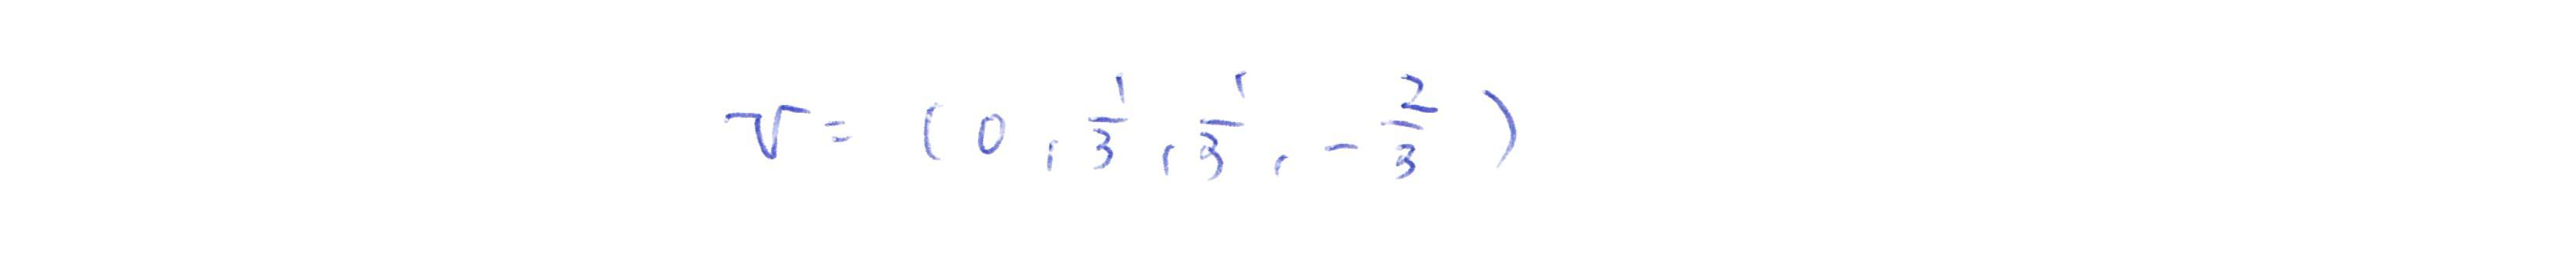 v = (0, 1/3, 1/3, -2/3)